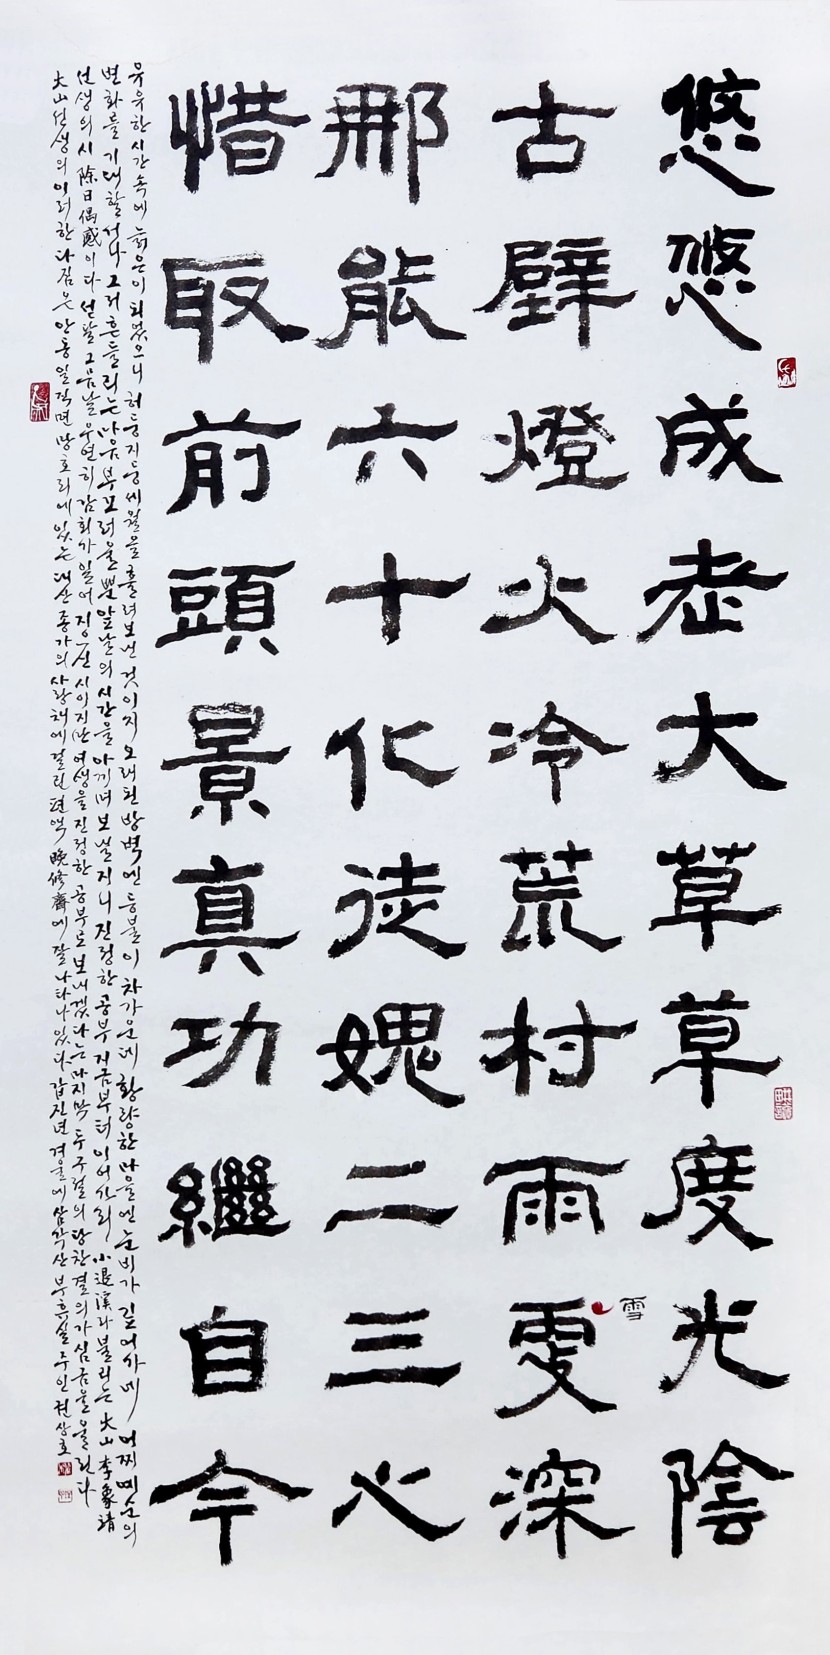 悠悠成老大草草度光陰
古壁燈火冷荒村雨雪深
那能六十化徒愧二三心
惜取前頭景真功繼自今
유유한 시간 속에 늙은이 되었으니 허둥지둥 세월을 흘려보낸 것이지 오래된 방벽엔 등불이 차가운데 황량한 마을엔 눈비가 깊어가네 어찌 예순의
변화를 기대할 그저 흔들리는 마음 부끄러울 뿐 앞날의 시간을 아끼며 보낼지니 진정한 공부 지금부터 이어가리 小退溪라 불리는 大山 李象靖
선생의 시 除日偶感이다 섣달 그믐날 우연히 감회가 일어 지으신 시이지만 여생을 진정한 공부로 보내겠다는 마지막 두 구절의 당찬 결의가 심금을 울린다
大山 선생의 이러한 다짐은 안동 일직면 망호리에 있는 대산종가의 사랑채에 걸린 편액 晩修齋에 잘 나타나 있다 갑진년 겨울에 삼각산 부휴실 주인 권상호